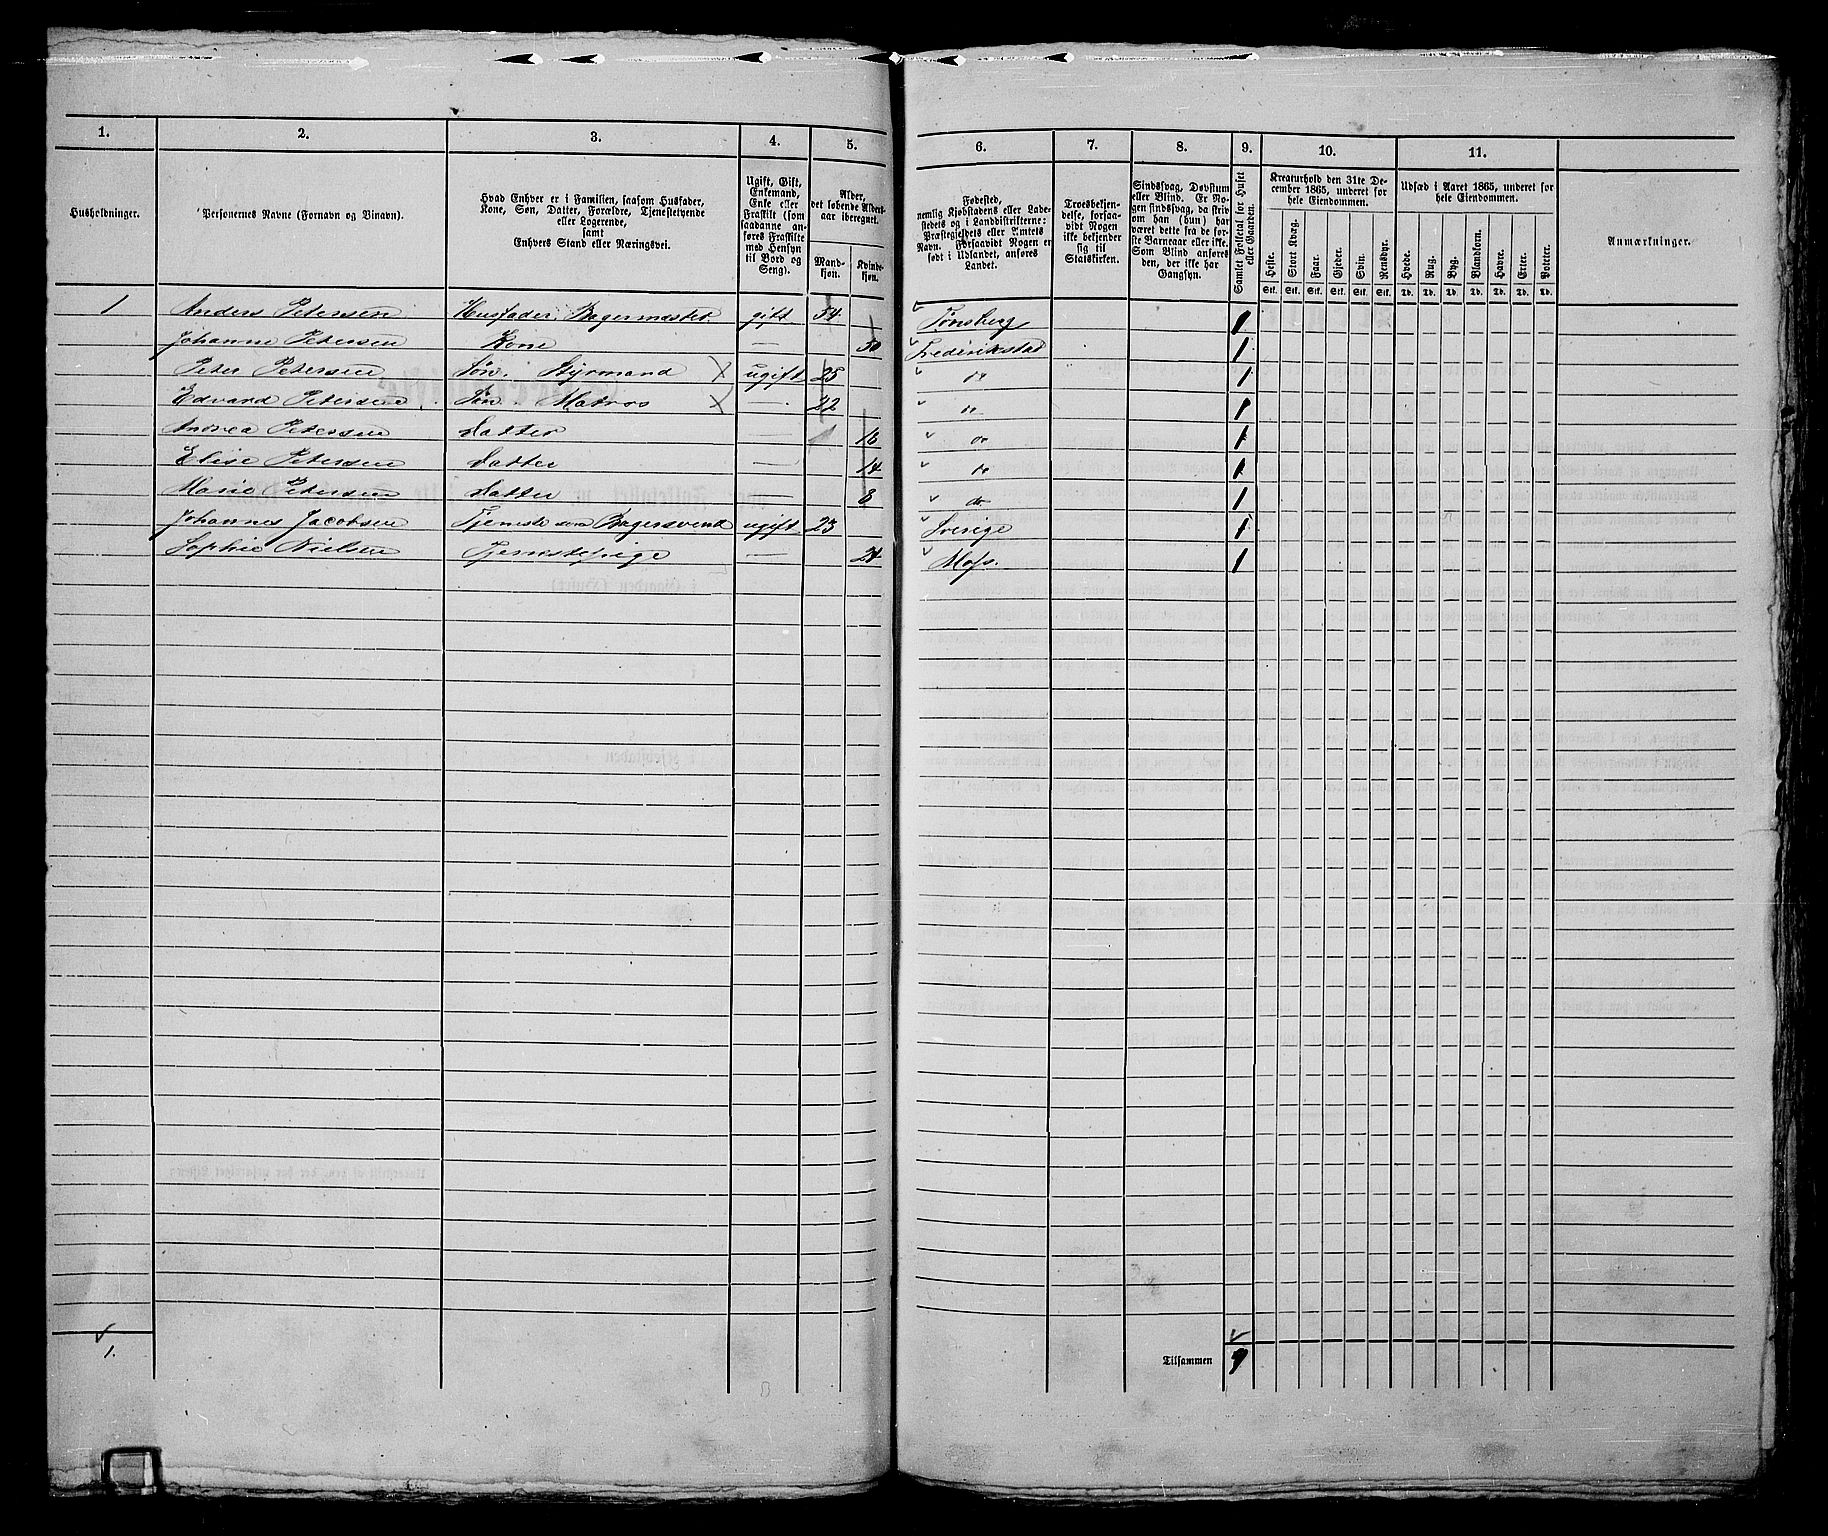 1. 2. 3. 4. 5. 6. 7. 8. 9. 10. 11.
Husholdninger.
Personernes Navne (Fornavn og Tilnavn).
Hvad Enhver er i Familien, saasom Husfader,
Kone, Søn, Datter, Forældre, Tjenestetyende
eller Logerende,
samt
Enhvers Stand eller Næringsvei.
Ugift, Gift,
Enkemand,
Enke eller
Fraskilt (som
saadanne an-
føres Fraskilte
med Hensyn
til Bord og
Seng).
Alder,
det løbende Alders-
aar iberegnet.
Mand-
kjøn.
Kvinde-
kjøn.
Fødested,
nemlig Kjøbstadens eller Lade-
stedets og i Landdistrikterne:
Præstegjeldets eller Amtets
Navn. Forsaavidt Nogen er
født i Udlandet, anføres
Landet.
Troesbekjen-
delse, forsaa-
vidt Nogen
ikke bekjender
sig til
Statskirken.
Sindssvag, Døvstum
eller Blind. Er No-
gen sindssvag, da skriv
om han (hun) har
været dette fra de før-
ste Barneaar eller ikke.
Som Blind anføres
den, der ikke har
Gangsyn.
Samlet Folketal for Huset
eller Gaarden.
Kreaturhold den 31te De-
cember 1865, underet for
hele Eiendommen.
Heste. Stort Kvæg. Faar. Gjeder. Svin. Rensdyr.
Stk. Stk. Stk. Stk. Stk. Stk.
Udsæd i Aaret 1865, underet for
hele Eiendommen.
Hvede. Rug. Byg. Blandkorn. Havre. Erter. Poteter.
Td. Td. Td. Td. Td. Td. Td.
Anmærkninger.
1 Anders Petersen Husfader, Bagermester gift 54 Tønsberg 1
Johanne Petersen Kone — 50 Frederikstad 1
Peter Petersen Søn. Styrmand ugift 25 do 1
Edvard Petersen Søn Matros — 22 do 1
Andrea Petersen Datter — 18 do 1
Elise Petersen Datter — 14 do 1
Marie Petersen Datter — 8 do 1
Johannes Jacobsen Tjeneste som Bagersvend ugift 23 Sverige 1
Sophie Nielsen Tjenestepige — 24 Moss. 1
1.
Tilsammen 9